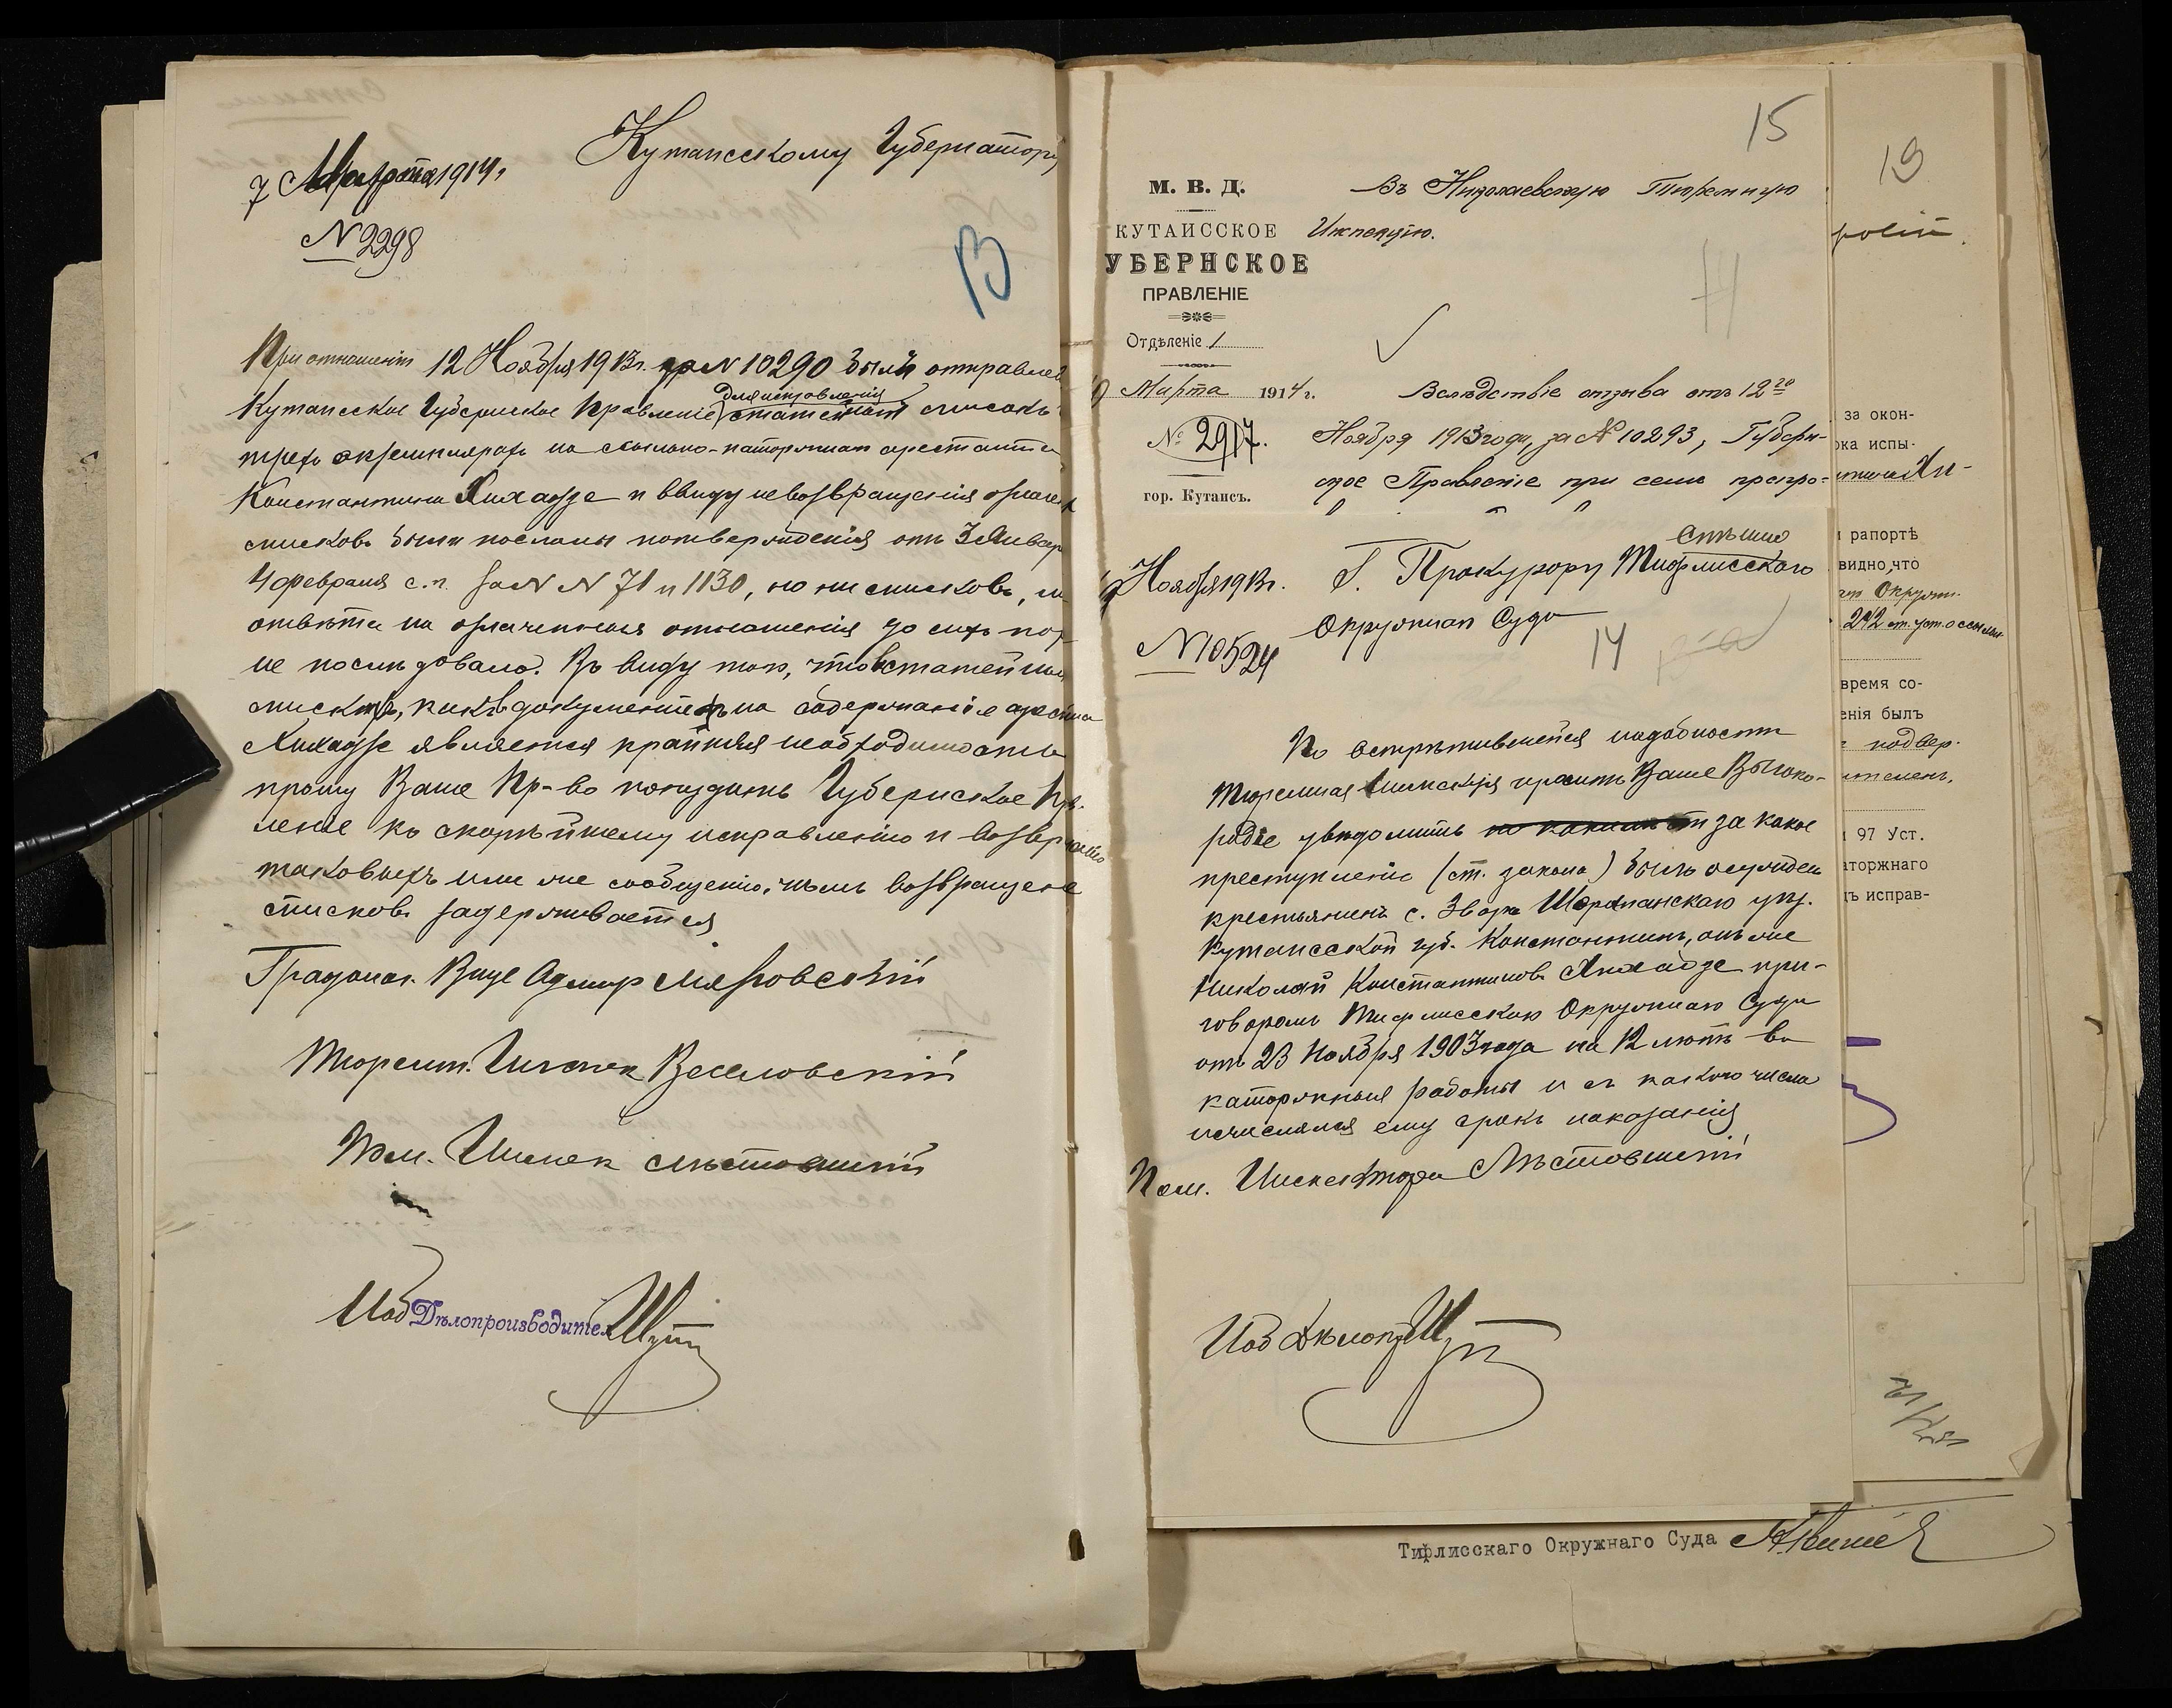 7 Марта 1914 г.
Кутаисскому Губернатору
№ 2298
13
При отношеніи 12 Ноября 1913 г. за № 10290 были отправлен
для исправленія
Кутаисское Губернское Правленіе статейный списокъ
трехъ экземплярахъ на ссыльно-каторжнаго арестанта
Константина Хихадзе и ввиду невозвращенія означен
списковъ были посланы подтвержденія отъ 3 Январ
4 февраля с.г. за № № 71 и 1130, но ни списковъ, ни
отвѣта на означенныя отношенія до сихъ пор
не послѣдовало. Въ виду того, что въ статейны
спискахъ, какъ документѣ на содержаніе ареста
Хихадзе является крайняя необходимость
прошу Ваше Пр-во понудить Губернское Пр.
леніе къ скорѣйшему исправленію и возвращенію
таковыхъ или же сообщенію, чѣмъ возвращеніе
списковъ задерживается
Градонач. Вице Адмир Мязговскій
Тюремн. Инспек Веселовскій
Пом. Инспек Мѣстовскій
Иоб Дѣлопроизводител
15
М. В. Д.
КУТАИССКОЕ
УБЕРНСКОЕ
ПРАВЛЕНІЕ
Отдѣленіе 1
Марта 1914 г.
№ 2917.
гор. Кутаисъ.
Въ Николаевскую Тюремную
Инспекцію.
Вслѣдствіе отзыва отъ 12го
Ноября 1913 года, за № 10293, Губерн-
ское Правленіе при семъ препро-
Спѣшно
Ноября 1913 г.
Г. Прокурору Тифлисскаго
Окружнаго Суда
№ 10524
14
По встрѣтившейся надобности
Тюремная Инспекція проситъ Ваше Высоко-
родіе увѣдомить за какое
преступленіе (ст. закона) былъ осужденъ
крестьянинъ с. Звари Шорапанскаго уѣз.
Кутаисской губ. Константинъ, онъ же
Николай Константиновъ Хихадзе при-
говоромъ Тифлисскаго Окружнаго Суда
отъ 23 Ноября 1903 года на 12 лѣтъ въ
каторжныя работы и съ какого числа
исчислялся ему срокъ наказанія
Пом. Инспектора Мѣстовскій
Иоб Дѣлопр
19
за окон-
ока испы-
Хи-
рапортѣ
видно, что
Окружн.
212 ст. уст. о ссыльн
время со-
енія былъ
подвер-
97 Уст.
аторжнаго
ъ исправ-
Тифлисскаго Окружнаго Суда